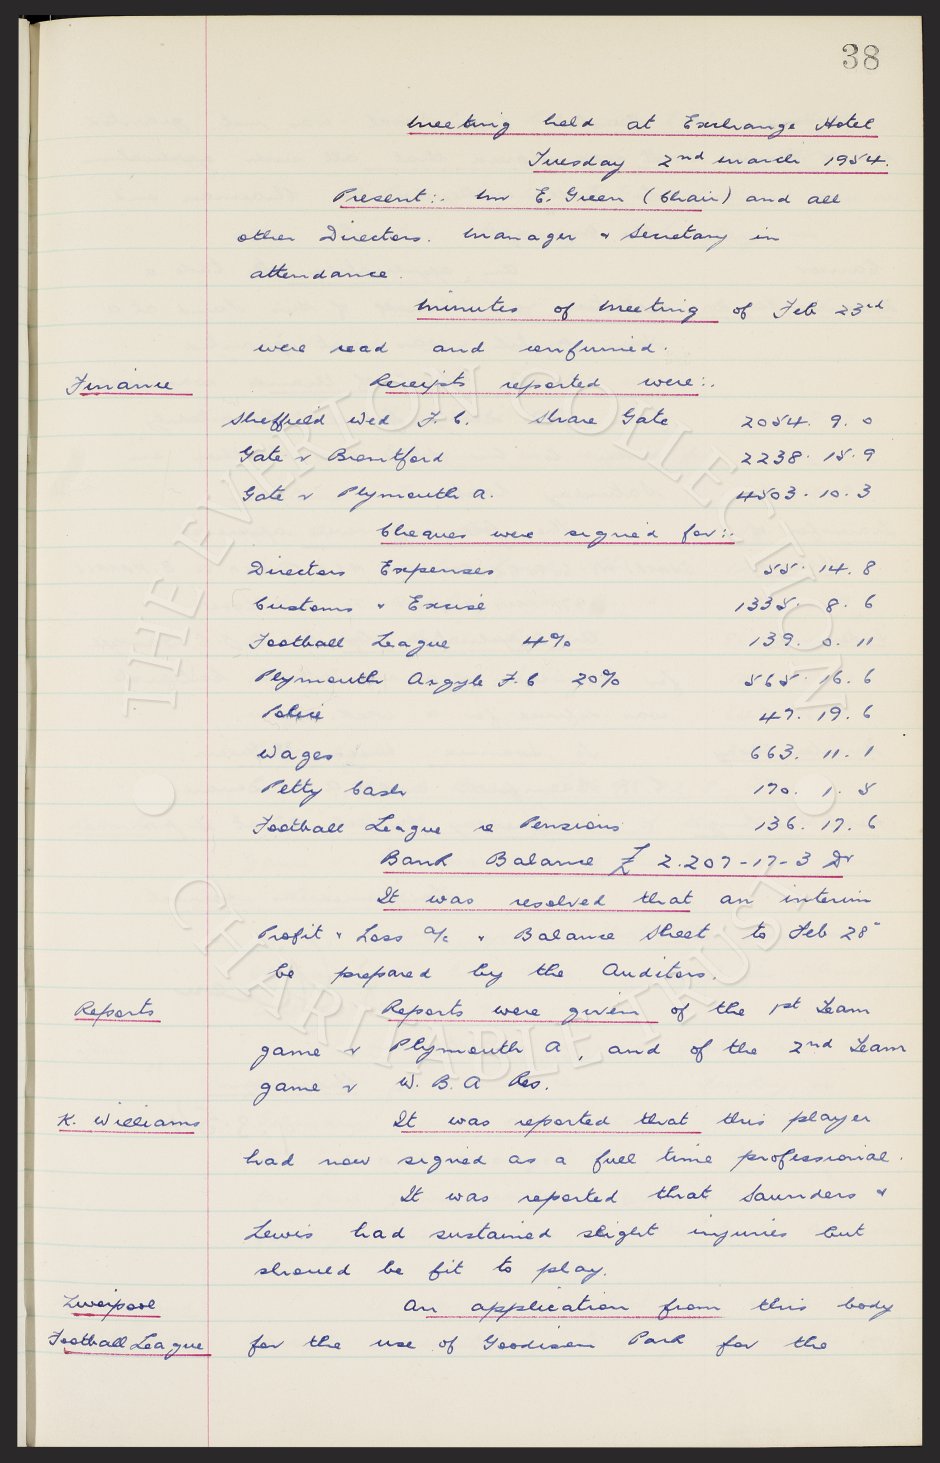 38
Meeting held at Exchange Hotel
Tuesday 2nd March 1954.
Present:. Mr E. Green (Chair) and all
other Directors. Manager & Secretary in
attendance.
Minutes of Meeting of Feb 23rd
were read and confirmed.
Finance Receipts reported were:.
Sheffield Wed F.C. Share Gate 2054. 9. 0
Gate v Brentford 2238. 15. 9
Gate v Plymouth A. 4503. 10. 3
Cheques were signed for:.
Directors Expenses 55. 14. 8
Customs & Excise 1335. 8. 6
Football League 4% 139. 0. 11
Plymouth Argyle F.C 20% 565. 16. 6
Police 47. 19. 6
Wages 663. 11. 1
Petty Cash 170. 1. 5
Football League re Pensions 136. 17. 6
Bank Balance £ 2.207-17-3 Dr
It was resolved that an interim
Profit & Loss a/c & Balance Sheet to Feb 28
be prepared by the Auditors.
Reports Reports were given of the 1st Team
game v Plymouth A, and of the 2nd Team
game v W.B.A Res.
K. Williams It was reported that this player
had now signed as a full time professional.
It was reported that Saunders &
Lewis had sustained slight injuries but
should be fit to play.
Liverpool An application from this body
Football League for the use of Goodison Park for the
THE EVERTON COLLECTION
CHARITABLE TRUST